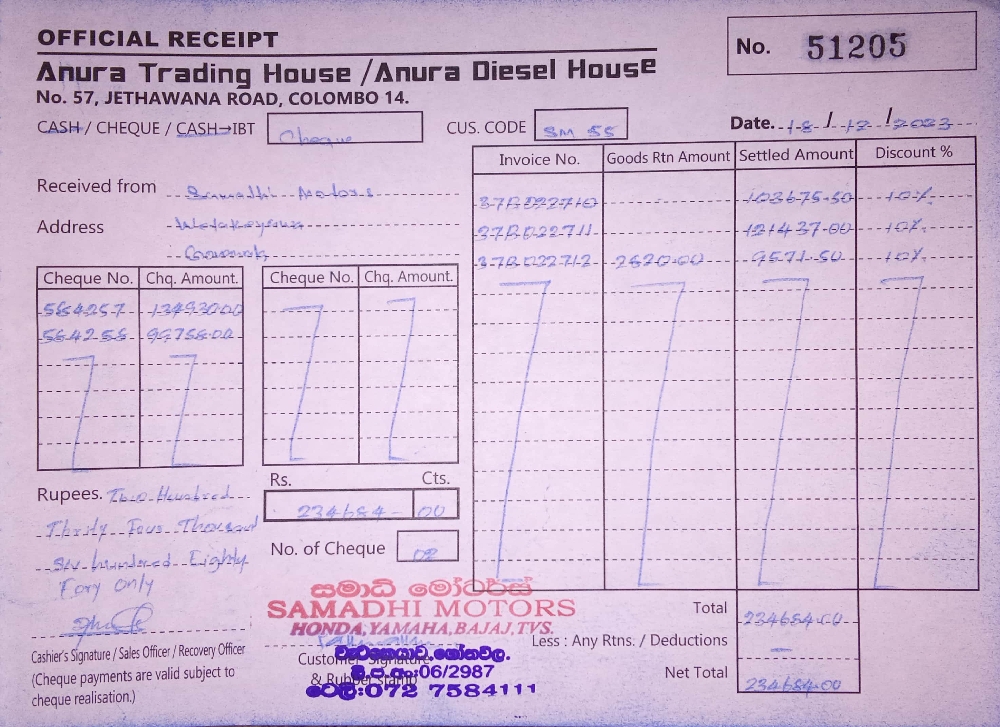 OFFICIAL RECEIPT
No. 51205
Anura Trading House /Anura Diesel House
No. 57, JETHAWANA ROAD, COLOMBO 14.
CASH / CHEQUE / CASH→IBT Cheque
CUS. CODE SM 55
Date. 18 / 12 / 2023
Invoice No. Goods Rtn Amount Settled Amount Discount %
Received from Samadhi Motors
37B022710 103675-50 10%
Address
37B022711 121437-00 10%
37B022712 2620-00 9571-50 10%
Cheque No. Chq. Amount. Cheque No. Chq. Amount.
564257 134930-00
564258 99758-00
Rs. Cts.
Rupees. Two Hundred
234684- 00
Thirty Four Thousand
Six hundred Eighty
No. of Cheque 02
Fory only
සමාධි මෝටර්ස්
SAMADHI MOTORS
HONDA, YAMAHA, BAJAJ, TVS.
Total 234684-00
Less : Any Rtns. / Deductions –
Net Total 234684-00
Cashier's Signature / Sales Officer / Recovery Officer
(Cheque payments are valid subject to
cheque realisation.)
Customer Signature
& Rubber Stamp
06/2987
ටෙලි:072 7584111